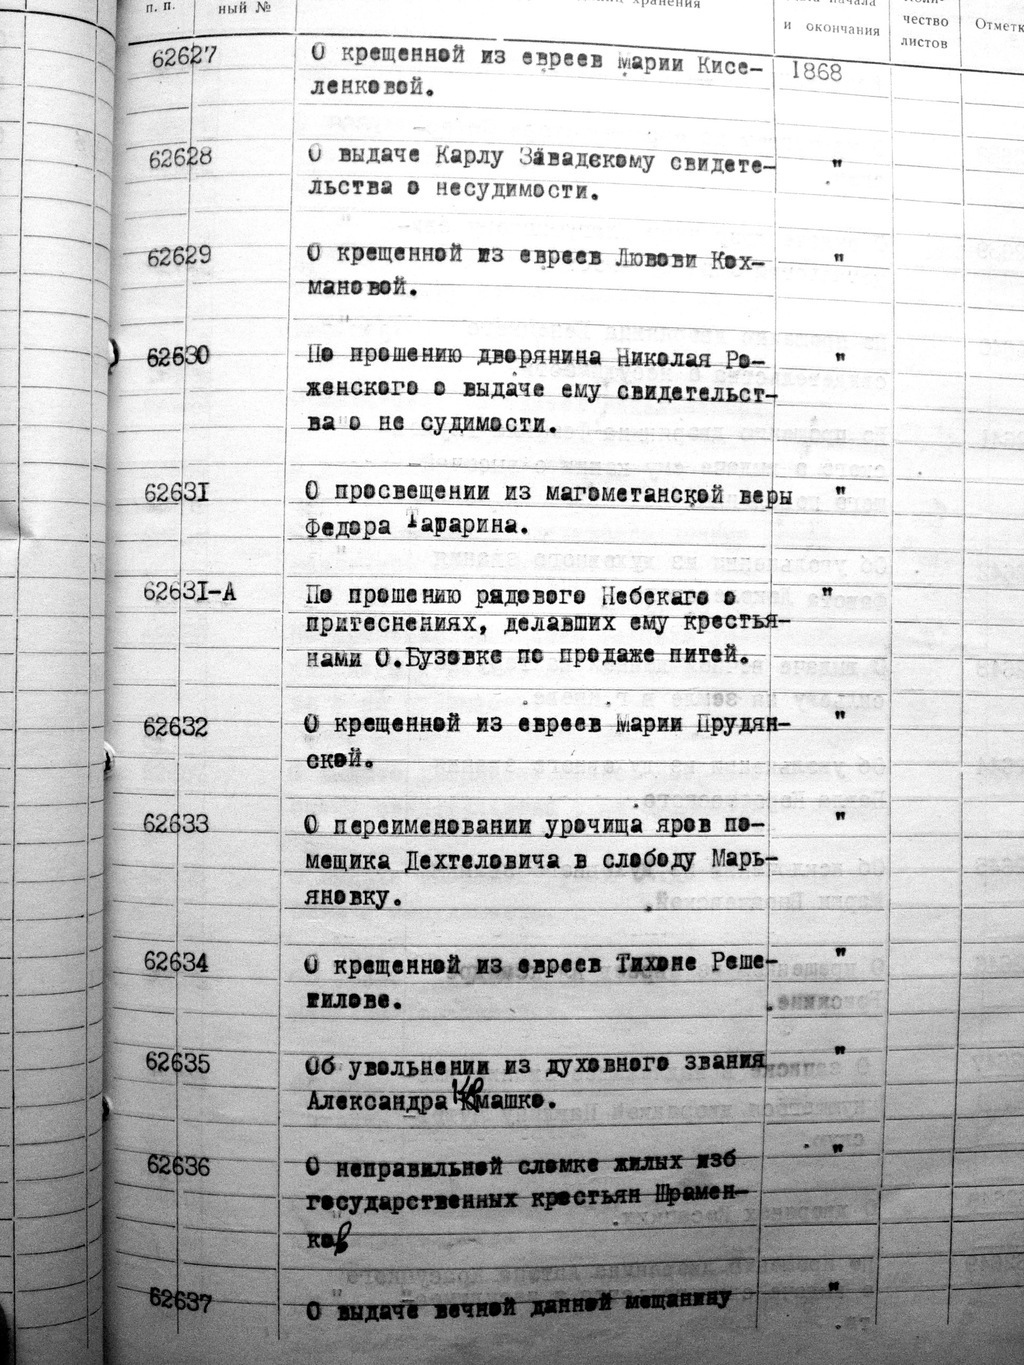 п. п.
ный №
хранения
начала
и окончания
чество
листов
Отметк
62627 О крещенной из евреев Марии Кисе- 1868
ленковой.
62628 О выдаче Карлу Завадскому свидете- "
льства о несудимости.
62629 О крещенной из евреев Лювови Кох- "
мановой.
62630 По прошению дворянина Николая Ро- "
женского о выдаче ему свидетельст-
ва о не судимости.
62631 О просвещении из магометанской веры "
Федора Татарина.
62631-А По прошению рядового Небекаго о "
притеснениях, делавших ему крестья-
нами О.Бузовке по продаже питей.
62632 О крещенной из евреев Марии Прудян- "
ской.
62633 О переименовании урочища яров по- "
мещика Дехтеловича в слободу Марь-
яновку.
62634 О крещенной из евреев Тихоне Реше- "
тилове.
62635 Об увольнении из духовного звания "
Александра Крмашко.
62636 О неправильной сломке жилых изб "
государственных крестьян Шрамен-
ков
62637 О выдаче вечной данной мещанину "